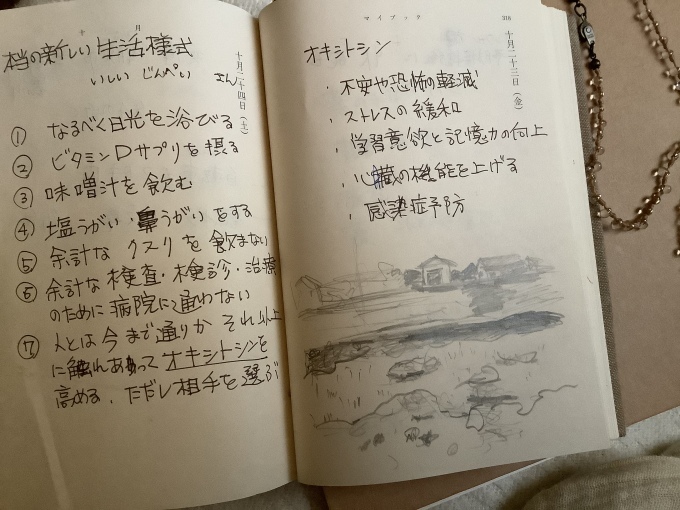 マイブック 318
十月二十三日(金)
オキシトシン
・不安や恐怖の軽減
・ストレスの緩和
・学習意欲と記憶力の向上
・心臓の機能を上げる
・感染症予防
十月
十月二十四日(土)
本当の新しい生活様式
いしい じんぺい さん
① なるべく日光を浴びる
② ビタミンDサプリを摂る
③ 味噌汁を飲む
④ 塩うがい・鼻うがいをする
⑤ 余計なクスリを飲まない
⑥ 余計な検査・検診・治療
のために病院に通わない
⑦ 人とは今まで通りかそれ以上
に触れあって オキシトシンを
高める。ただし相手を選ぶ